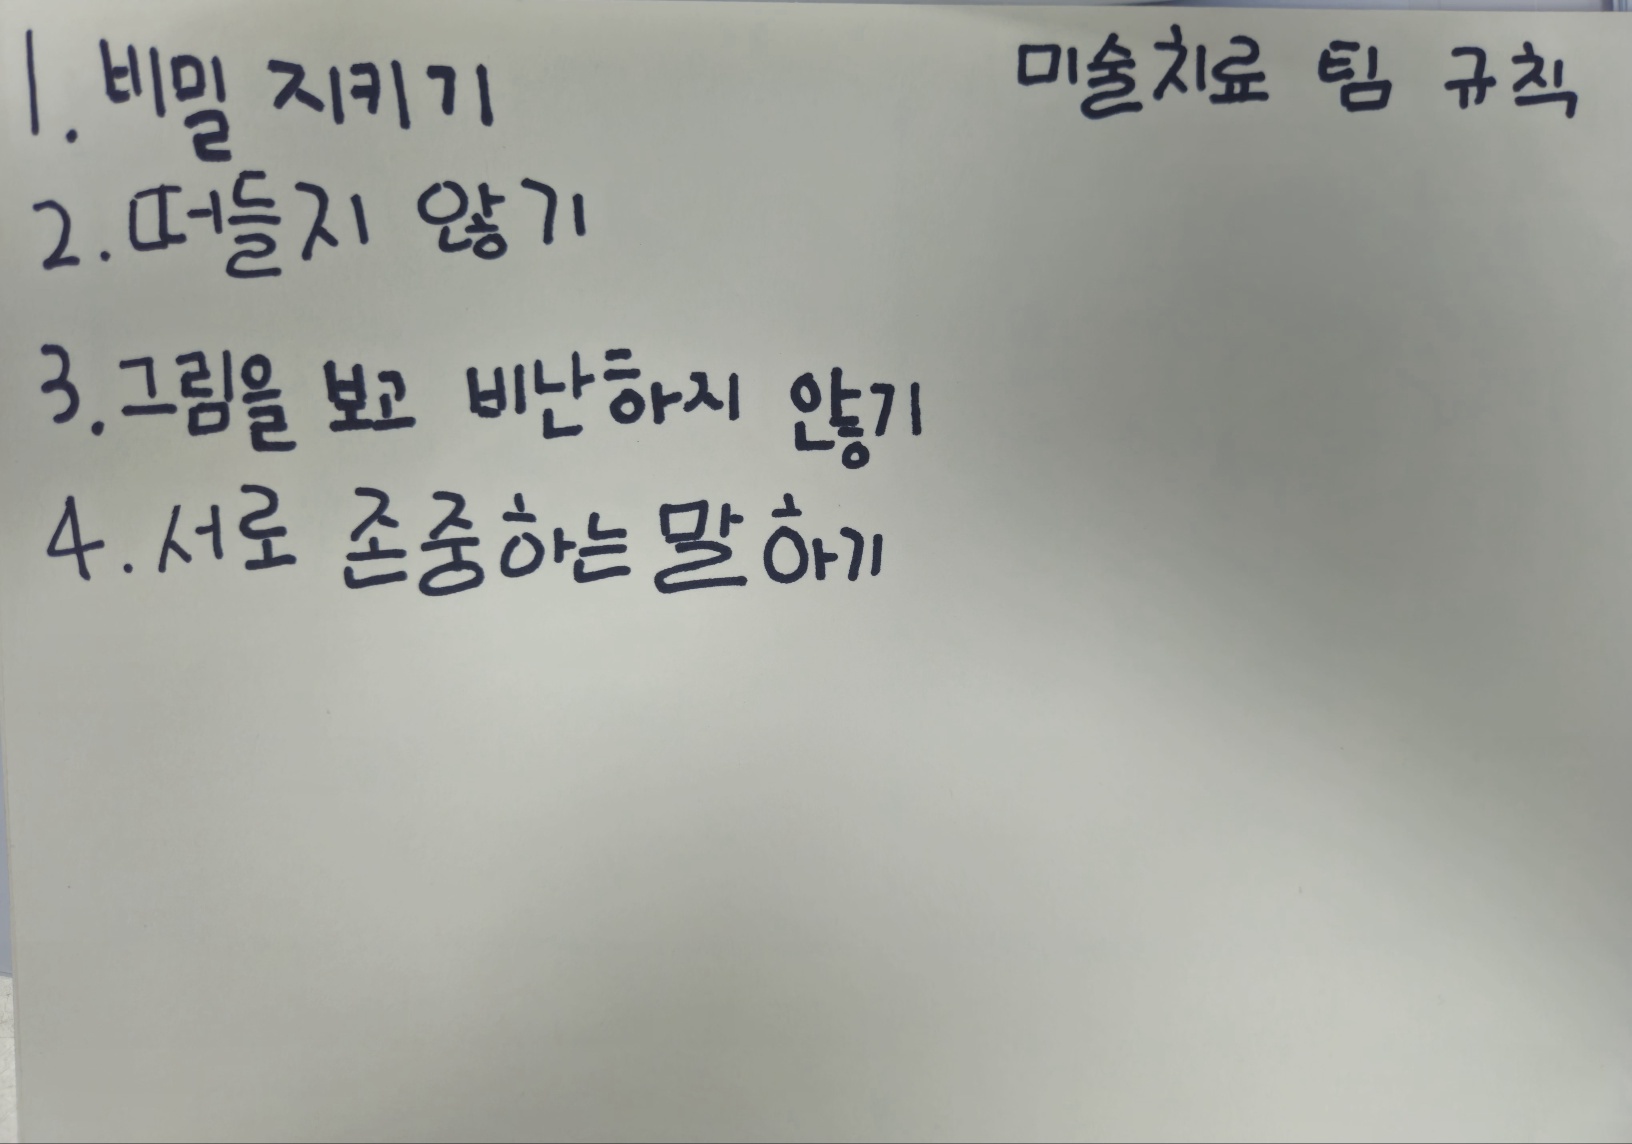 미술치료 팀 규칙
1. 비밀 지키기
2. 떠들지 않기
3. 그림을 보고 비난하지 않기
4. 서로 존중하는 말 하기